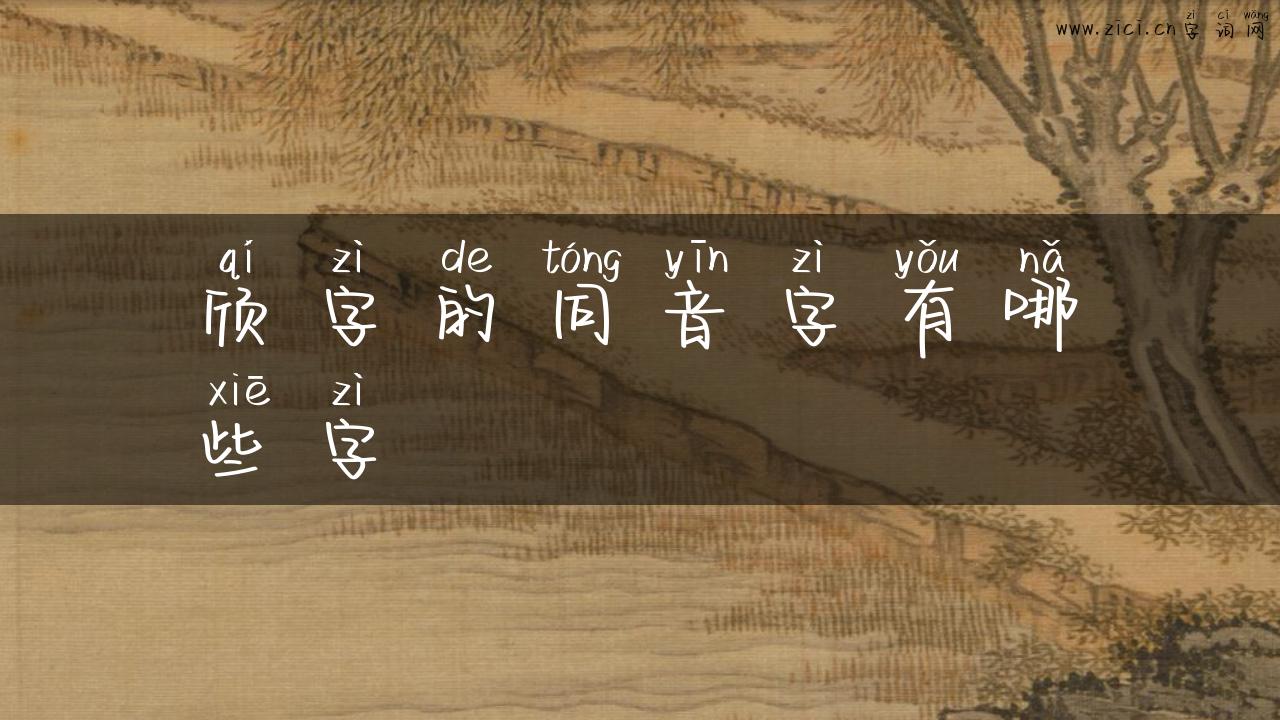 zì cí wǎng
www.zici.cn字词网
qí zì de tóng yīn zì yǒu nǎ
颀字的同音字有哪
xiē zì
些字